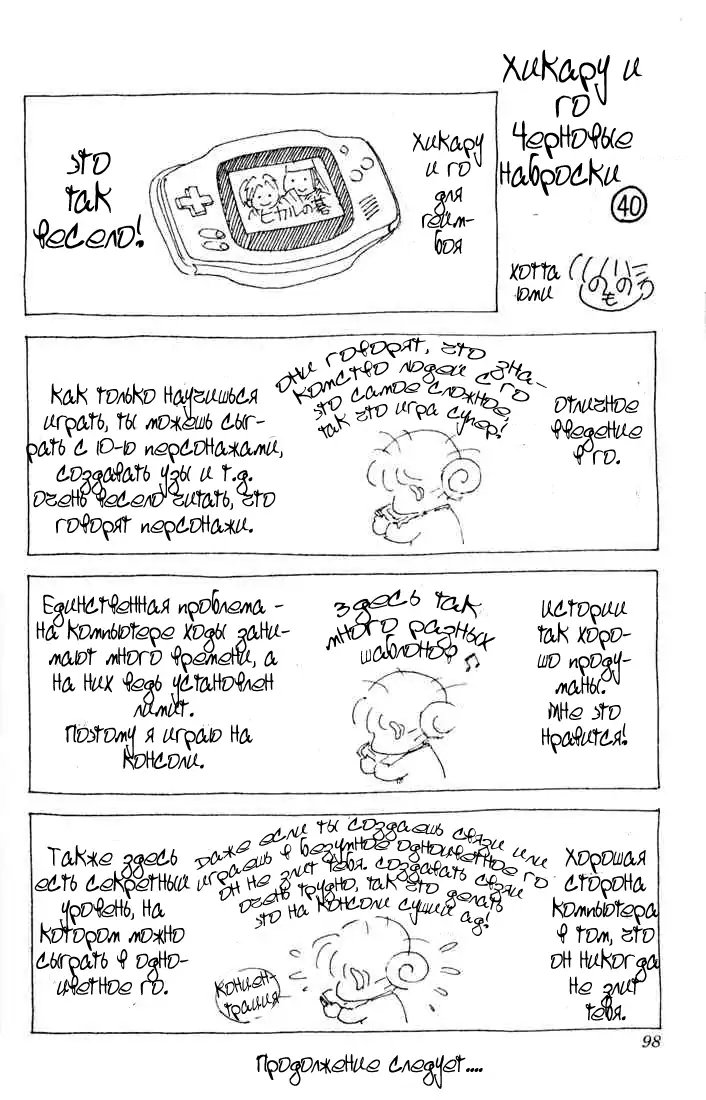 Хикару и
го
Черновые
наброски
40
Хотта
Юми
Хикару
и го
для
гейм-
боя
ヒカルの碁
Это
так
весело!
Отличное
введение
в го.
Они говорят, что зна-
комство людей с го
это самое сложное,
так что игра супер!
Как только научишься
играть, ты можешь сыг-
рать с 10-ю персонажами,
создавать узы и т.д.
Очень весело читать, что
говорят персонажи.
Истории
так хоро-
шо проду-
маны.
Мне это
нравится!
Здесь так
много разных
шаблонов
Единственная проблема -
на компьютере ходы зани-
мают много времени, а
на них ведь установлен
лимит.
Поэтому я играю на
консоли.
Хорошая
сторона
компьютера
в том, что
он никогда
не злит
тебя.
Даже если ты создаешь связи или
играешь в безумное одноцветное го
он не злит тебя. Создавать связи
очень трудно, так что делать
это на консоли сущий ад!
Концен-
трация
Также здесь
есть секретный
уровень, на
котором можно
сыграть в одно-
цветное го.
98
Продолжение следует....